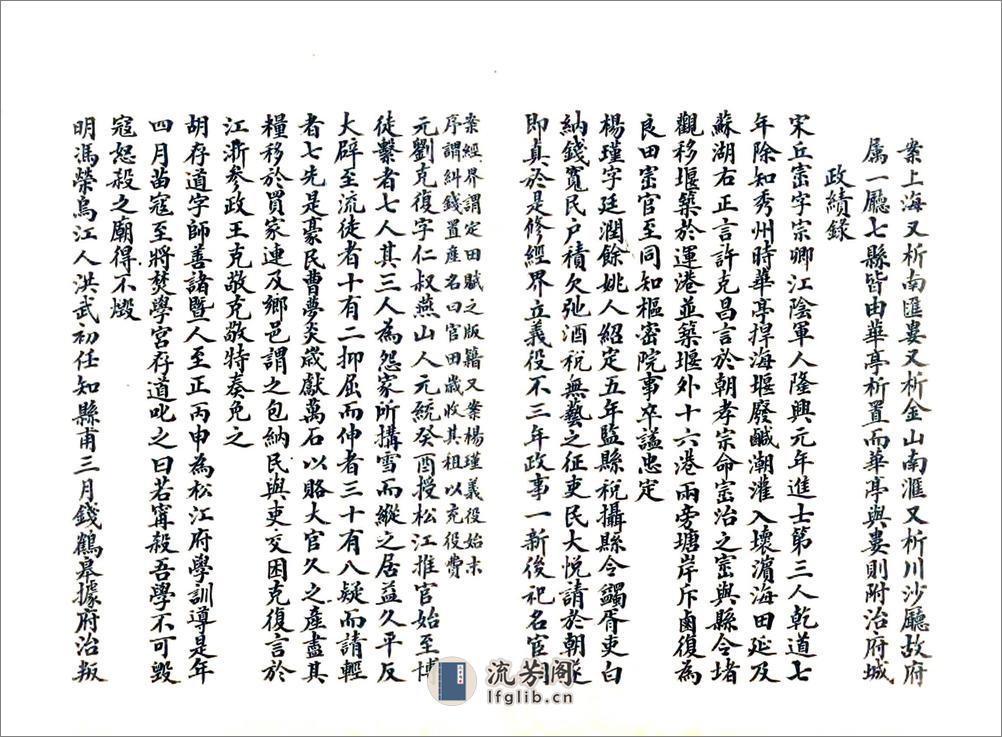 案上海又析南匯婁又析金山南滙又析川沙廳故府
属一廳七縣皆由華亭析置而華亭與婁則附治府城
政績錄
宋丘崈字宗卿江陰軍人隆興元年進士第三人乾道七
年除知秀州時華亭捍海堰廢鹹潮灌入壞濵海田延及
蘇湖右正言許克昌言於朝孝宗命崈治之崈與縣令堵
觀移堰築於運港並築堰外十六港兩旁塘岸斥鹵復為
良田崈官至同知樞密院事卒謚忠定
楊瑾字廷潤餘姚人紹定五年監縣税攝縣令蠲胥吏白
納錢寬民户積欠弛酒税無藝之征吏民大悦請於朝遂
即真於是修經界立義役不三年政事一新後祀名宦
案經界謂定田賦之版籍又案楊瑾義役始末
序謂糾錢置産名曰官田歲收其租以充役費
元劉克復字仁叔燕山人元統癸酉授松江推官始至
徒繫者七人其三人為怨家所搆雪而縱之居益久平反
大辟至流徒者十有二抑屈而伸者三十有八疑而請輕
者七先是豪民曹夢炎歲獻萬石以賂大官久之産盡其
糧移於買家連及鄉邑謂之包納民與吏交困克復言於
江浙參政王克敬克敬特奏免之
胡存道字師善諸暨人至正丙申為松江府學訓導是年
四月苗寇至將焚學宮存道叱之曰若寗殺吾學不可毀
寇怒殺之廟得不燬
明馮榮烏江人洪武初任知縣甫三月錢鶴皋據府治叛
流芳阁
lfglib.cn